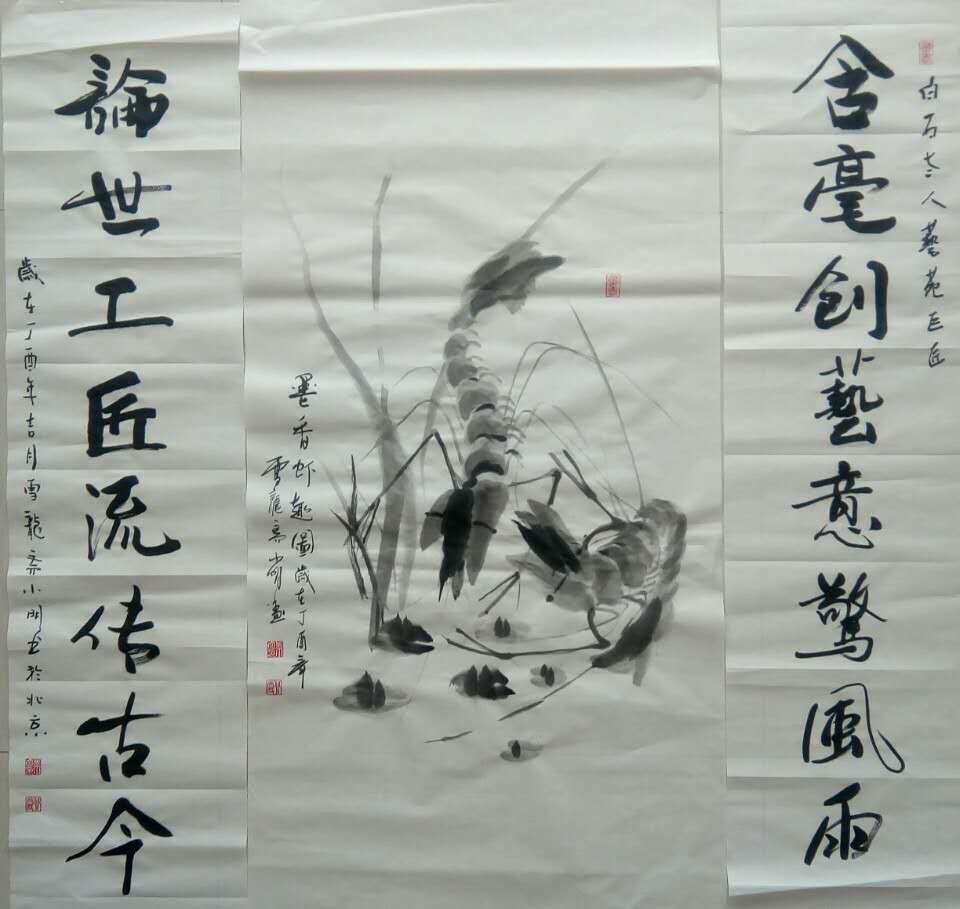 白石老人藝苑巨匠
含毫创藝意驚風雨
墨香虾趣圖歲在丁酉年
雪龍斋小明画
論世工匠流传古今
歲在丁酉年吉月雪龍斋小明书於北京